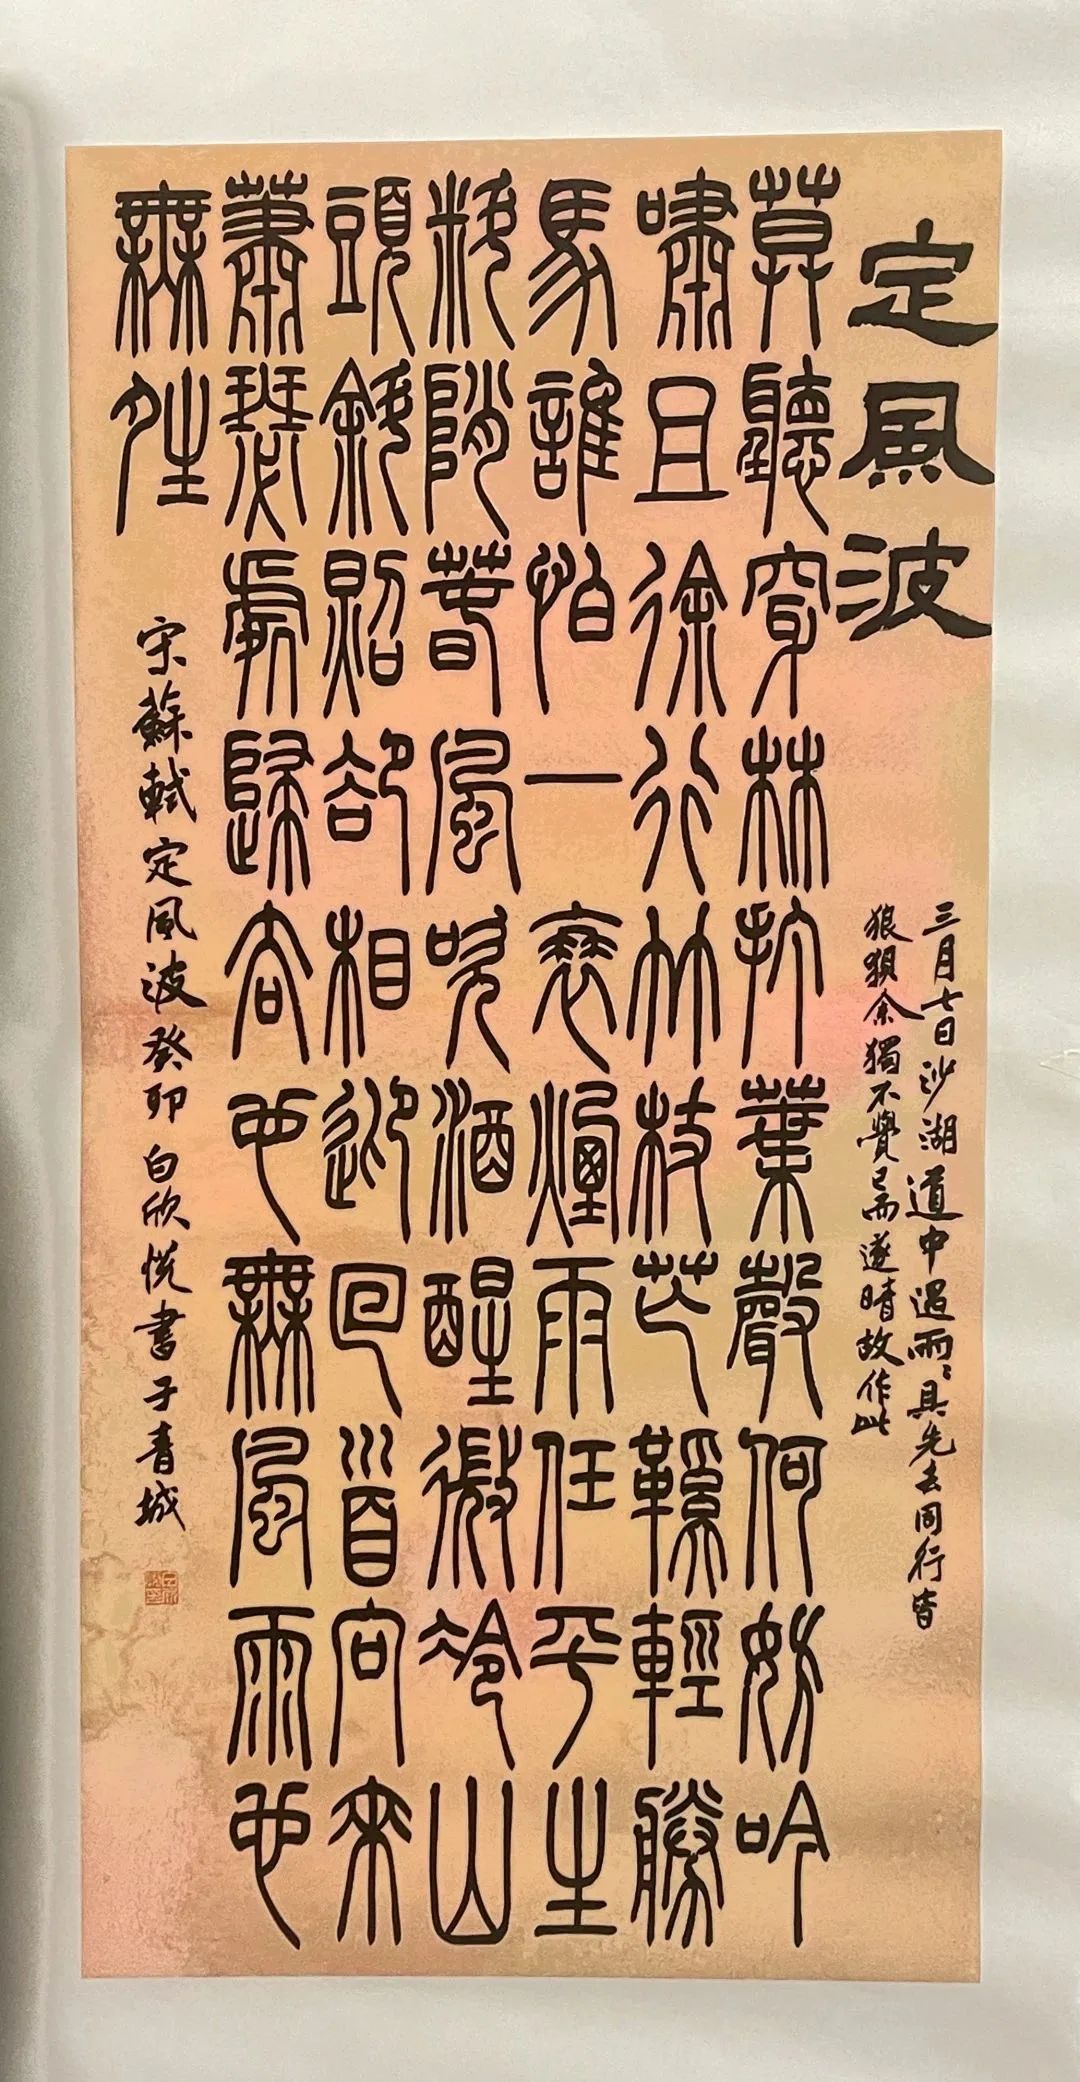 定風波
三月七日沙湖道中遇雨〻具先去同行皆
狼狽余獨不覺已而遂晴故作此
莫聽穿林打葉聲何妨吟
嘯且徐行竹杖芒鞵輕勝
馬誰怕一蓑煙雨任平生
料陗春風吹酒醒微冷山
頭斜照卻相迎回首向來
蕭瑟處歸去也無風雨也
無夝
宋蘇軾定風波癸卯白欣悅書于青城